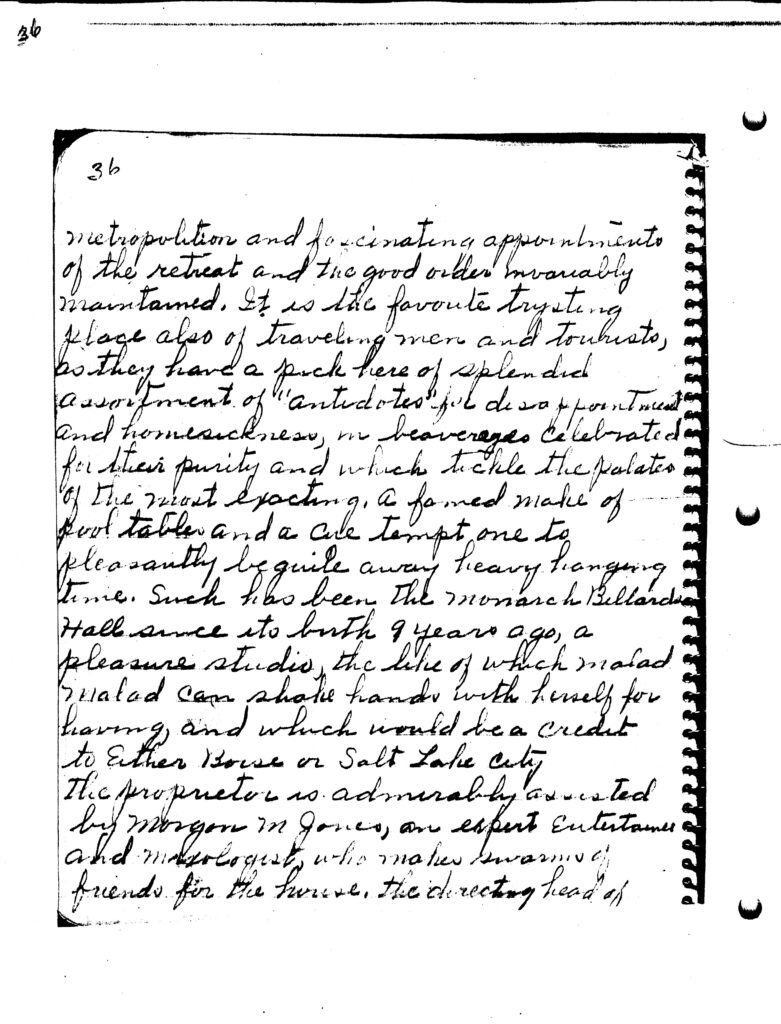 36
36
metropolition and fascinating appointments
of the retreat and the good order invariably
maintained. It is the favoute trysting
place also of traveling men and tourists,
as they have a pick here of splendid
assortment of "antidotes" for disappointment
and homesickness, in beaverages celebrated
for their purity and which tickle the palates
of the most exacting. A famed make of
pool tables and a cue tempt one to
pleasantly beguile away heavy hanging
time. Such has been the Monarch Billards
Hall since its birth 9 years ago, a
pleasure studio, the like of which Malad
Malad can shake hands with herself for
having, and which would be a credit
to Either Boise or Salt Lake City
The proprietor is admirably assisted
by Morgan M Jones, an expert Entertainer
and Mixologist, who makes swarms of
friends for the house. The directing head of